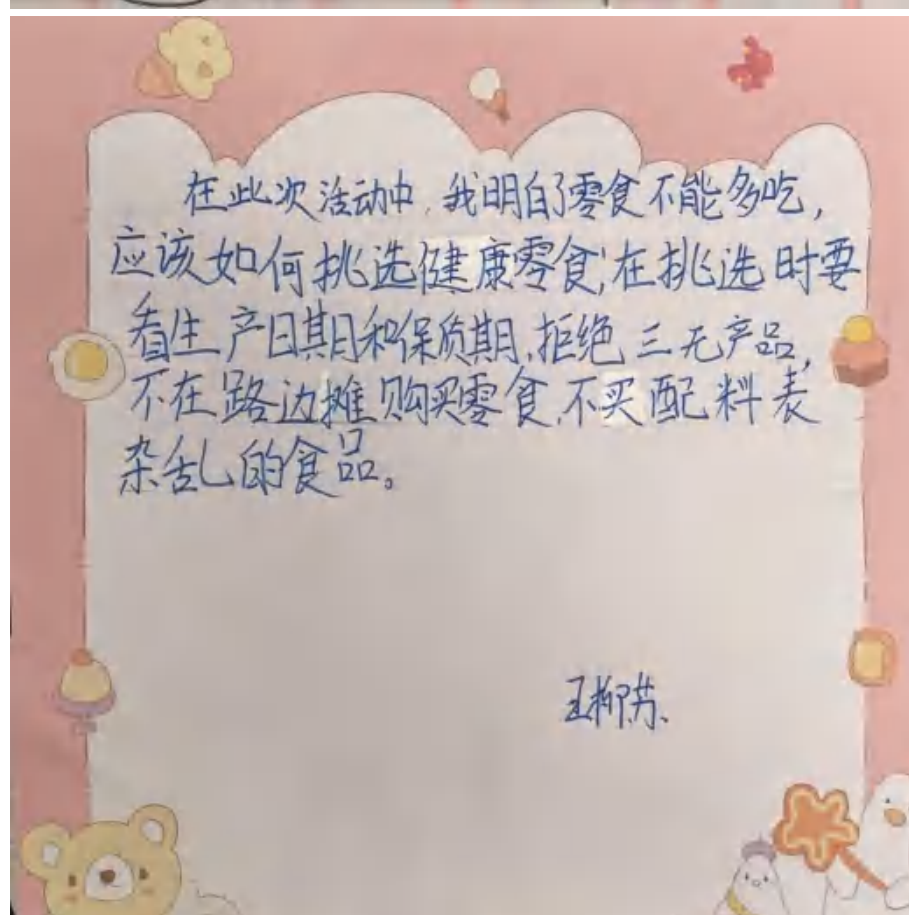 在此次活动中,我明白了零食不能多吃,
应该如何挑选健康零食;在挑选时要
看生产日期和保质期,拒绝三无产品,
不在路边摊购买零食,不买配料表
杂乱的食品。
王柳苏